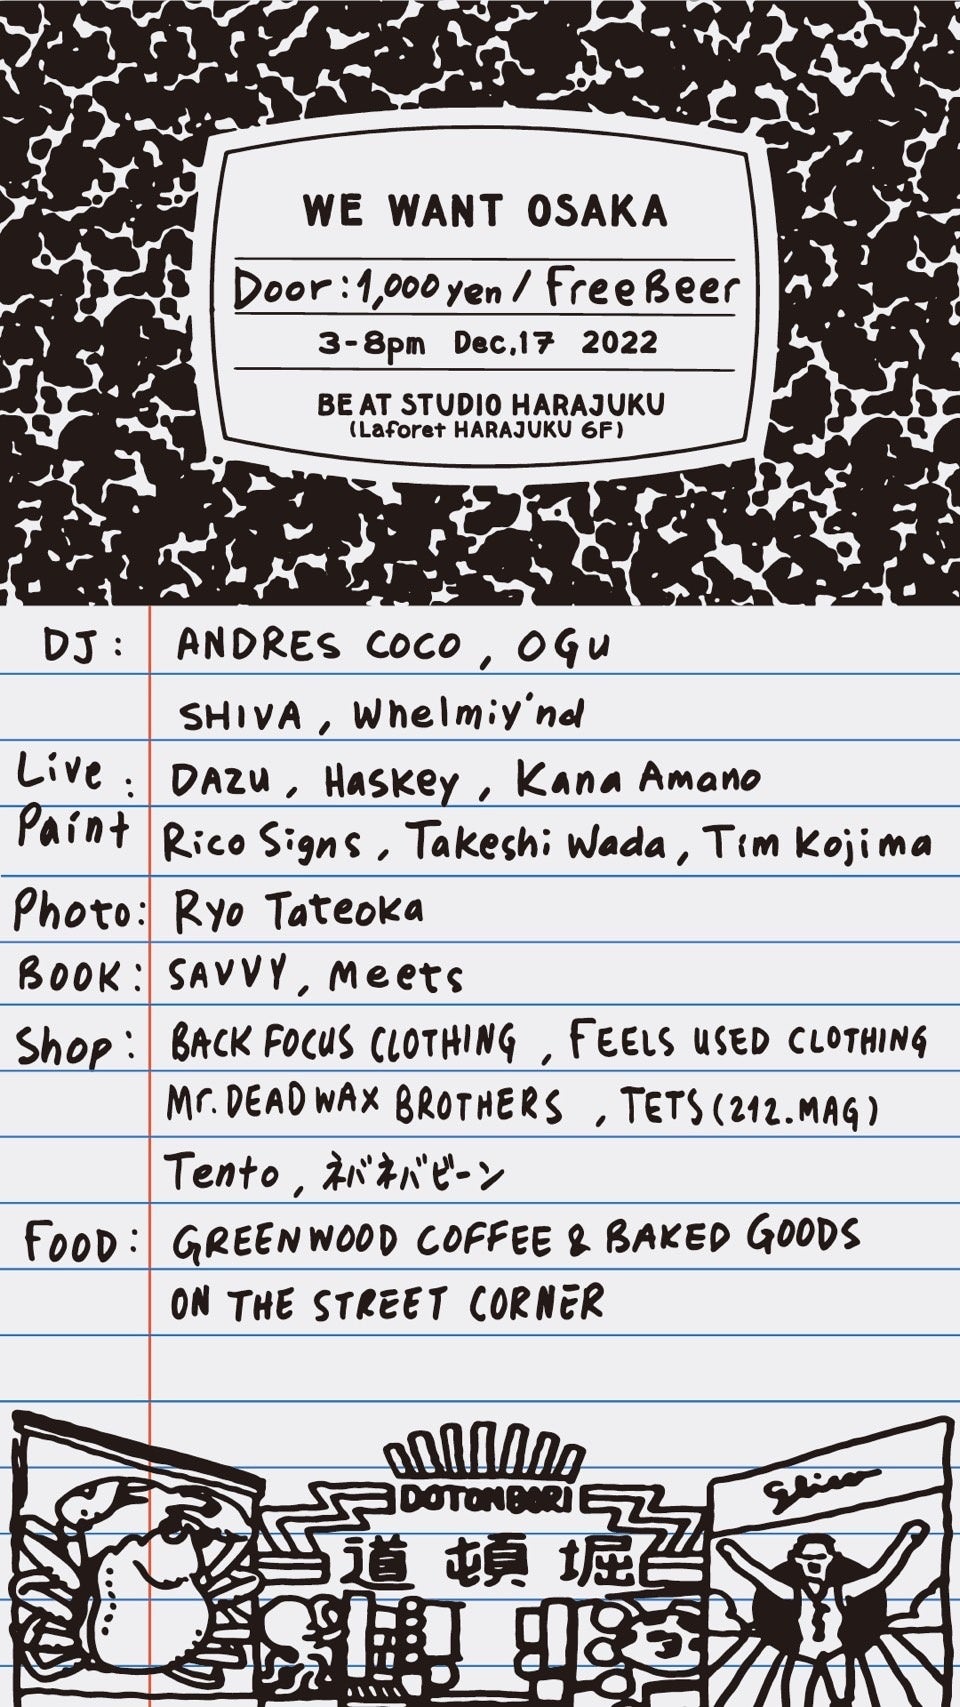 WE WANT OSAKA
Door:1,000yen / FreeBeer
3-8pm Dec.17 2022
BEAT STUDIO HARAJUKU
(Laforet HARAJUKU 6F)
DJ: ANDRES COCO, OGU
SHIVA, Whelmiy'nd
Live Paint: DAZU, Haskey, Kana Amano
Rico Signs, Takeshi Wada, Tim Kojima
Photo: Ryo Tateoka
BOOK: SAVVY, Meets
Shop: BACK FOCUS CLOTHING, FEELS USED CLOTHING
Mr. DEADWAX BROTHERS, TETS(212.MAG)
Tento, ネバネバビーン
FOOD: GREENWOOD COFFEE & BAKED GOODS
ON THE STREET CORNER
DOTOMBORI
道頓堀